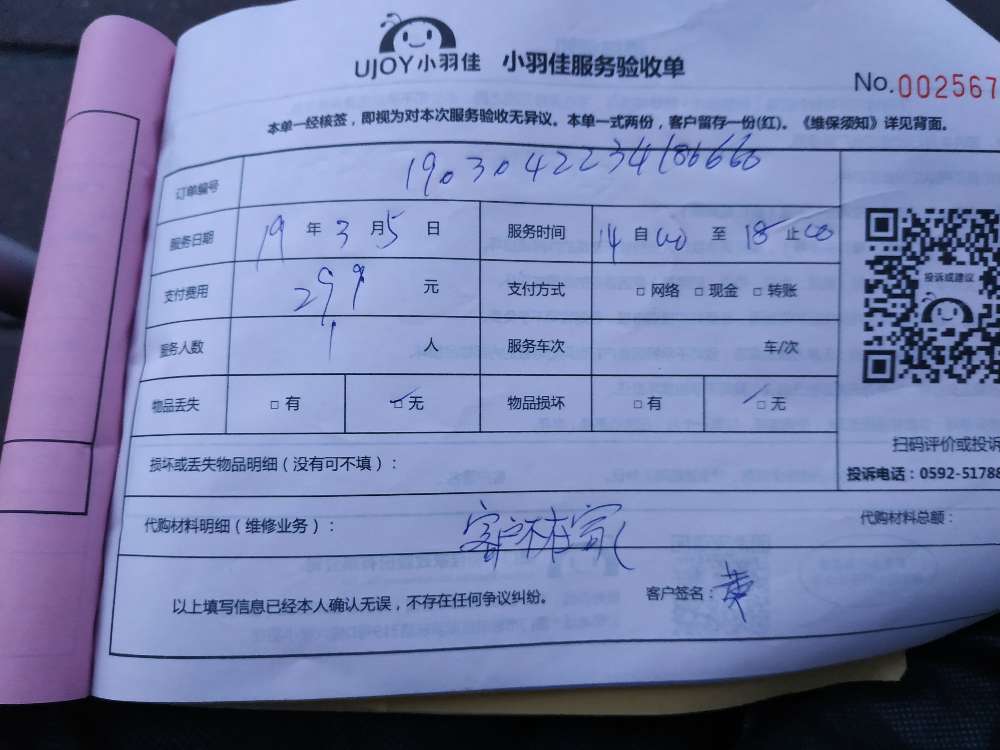 UJOY小羽佳 小羽佳服务验收单
No.002567
本单一经核签，即视为对本次服务验收无异议。本单一式两份，客户留存一份(红)。《维保须知》详见背面。
订单编号 190304223418666
服务日期 19年3月5日 服务时间 14自00至18止00
投诉或建议
支付费用 299元 支付方式 □网络 □现金 □转账
服务人数 1人 服务车次 车/次
物品丢失 □有 □无 物品损坏 □有 □无
扫码评价或投诉
损坏或丢失物品明细（没有可不填）：
投诉电话：0592-51788
代购材料明细（维修业务）： 客户不在家 代购材料总额：
以上填写信息已经本人确认无误，不存在任何争议纠纷。 客户签名：黄